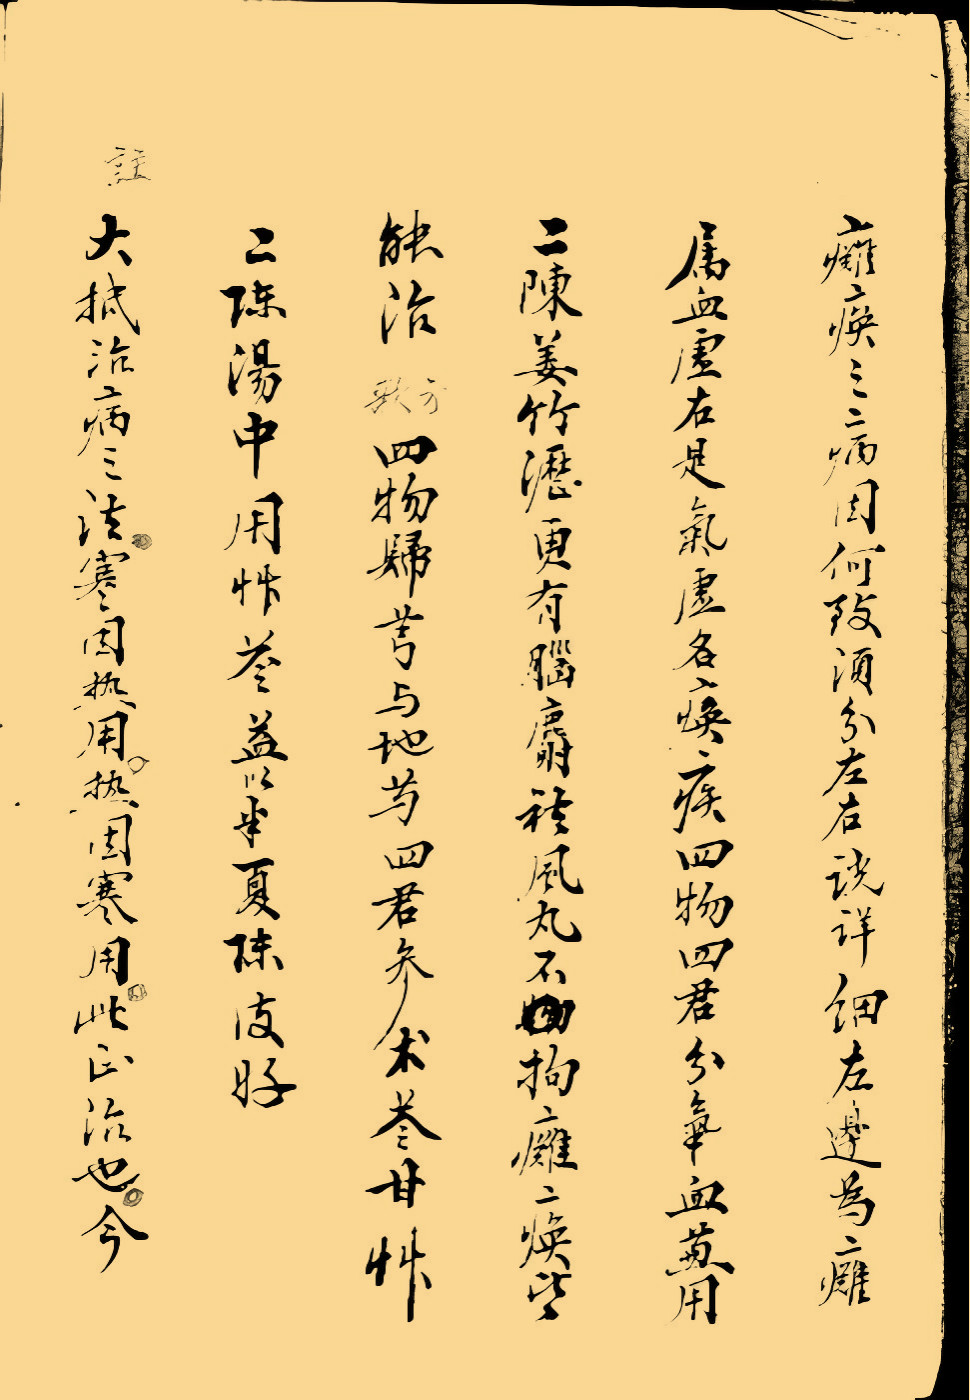 癱瘓之病因何致須分左右說詳細左邊為癱
属血虛右是氣虛名瘓疾四物四君分氣血兼用
二陳姜竹瀝更有腦麝祛風丸不拘癱瘓皆
能治 方歌 四物歸芎与地芍四君参术苓甘艸
二陳湯中用艸苓益以半夏陳皮好
註 大抵治病之法寒因热用热因寒用此正治也今